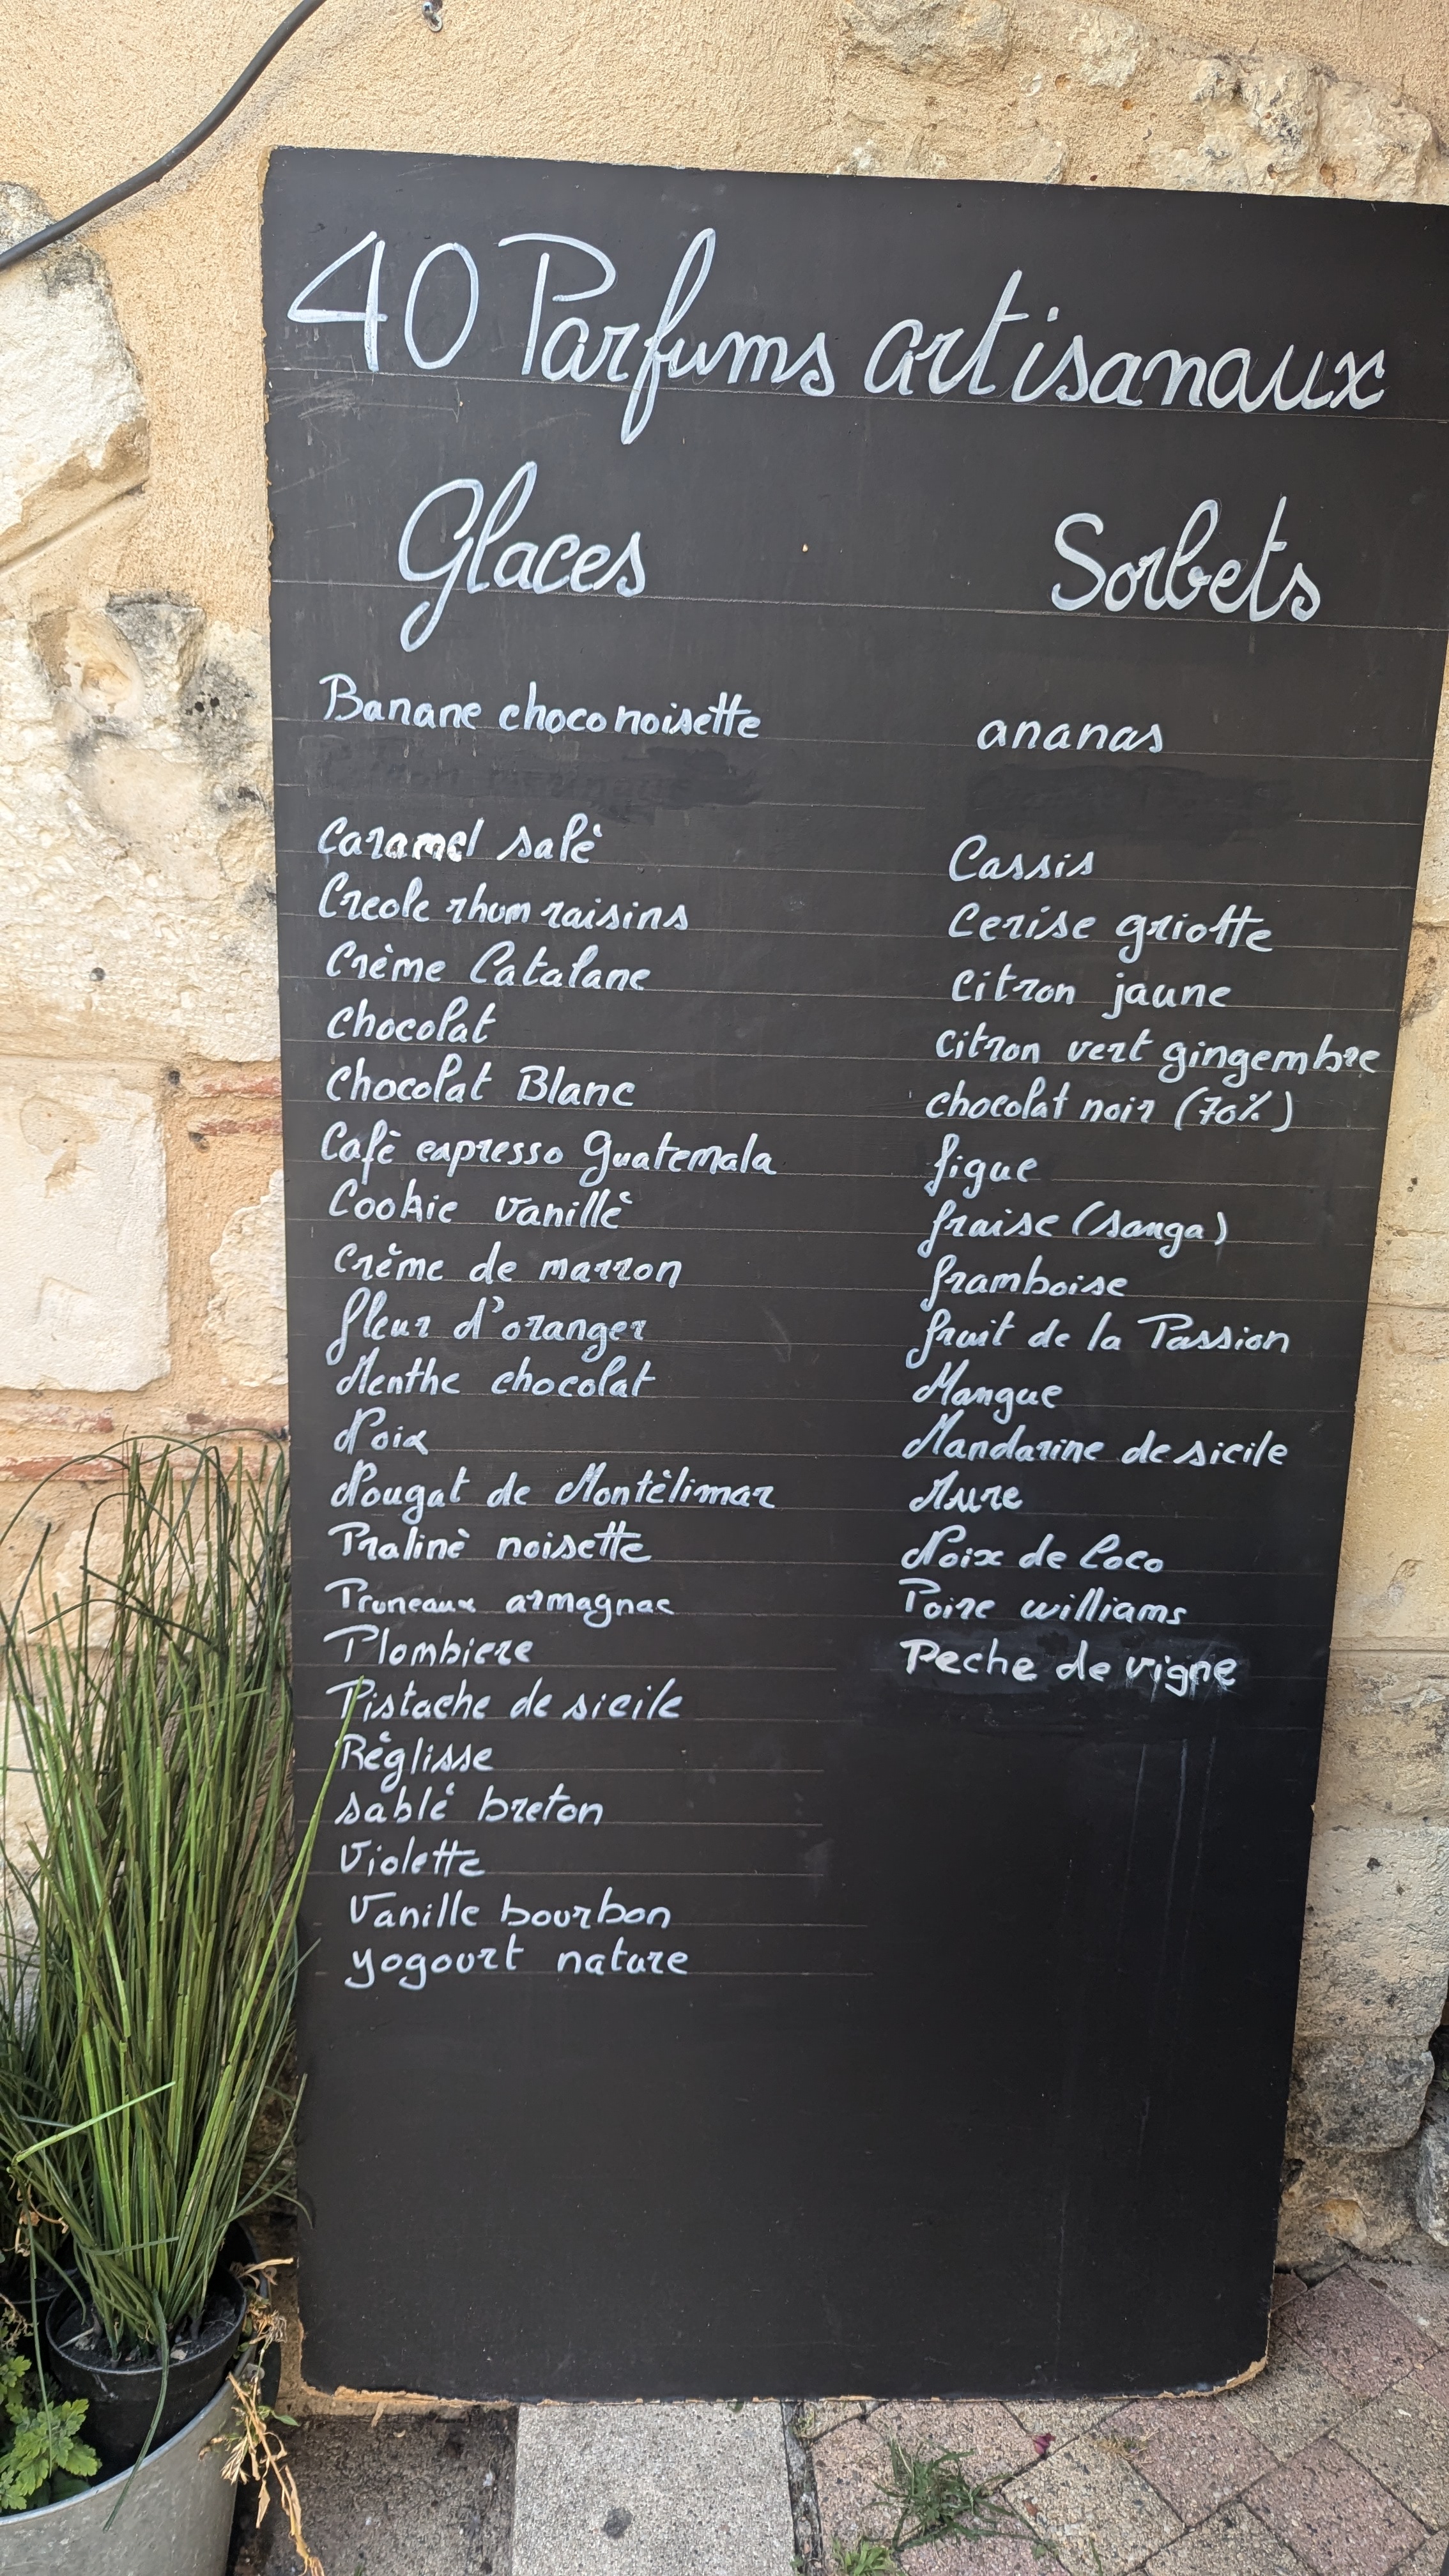 40 Parfums artisanaux
Glaces
Banane choco noisette
Caramel salé
Creole rhum raisins
Crème Catalane
Chocolat
Chocolat Blanc
Café expresso Guatemala
Cookie vanillé
Crème de marron
fleur d'oranger
Menthe chocolat
Noix
Nougat de Montélimar
Praliné noisette
Pruneaux armagnac
Plombiere
Pistache de sicile
Réglisse
sablé breton
Violette
Vanille bourbon
yogourt nature
Sorbets
ananas
Cassis
Cerise griotte
Citron jaune
Citron vert gingembre
chocolat noir (70%)
figue
fraise (sanga)
framboise
fruit de la Passion
Mangue
Mandarine de sicile
Mure
Noix de Coco
Poire williams
Peche de vigne